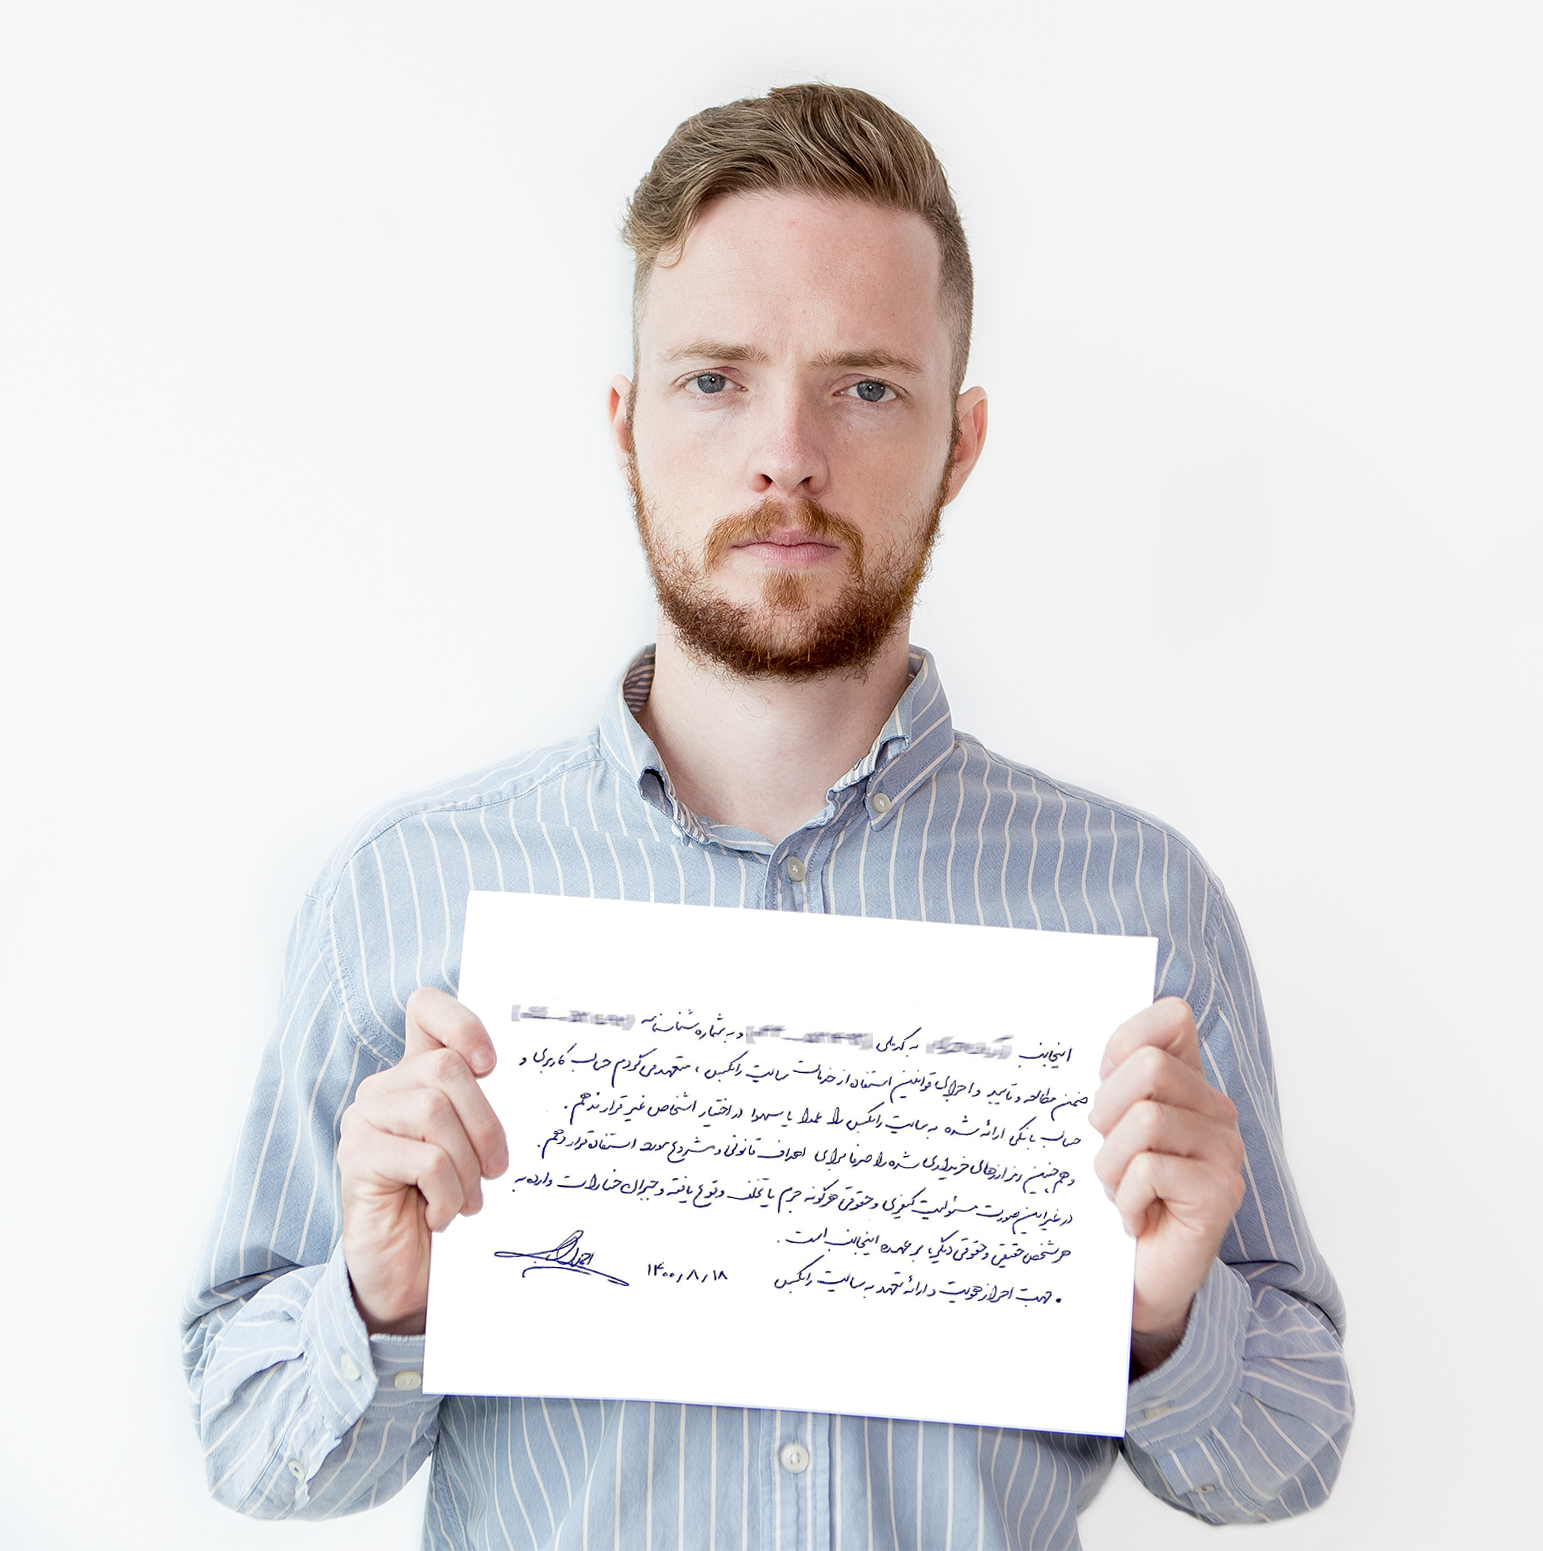 اینجانب به کدملی و به شماره شناسنامه
ضمن مطالعه و تایید و اجرای قوانین استفاده از خدمات سایت رانکس ، متعهد می گردم حساب کاربری و
حساب بانکی ارائه شده به سایت رانکس را عمدا یا سهوا در اختیار اشخاص غیر قرار ندهم .
و همچنین رمز ارزهای خریداری شده را صرفا برای اهداف قانونی و مشروع مورد استفاده قرار دهم .
در غیر این صورت مسئولیت کیفری و حقوقی هرگونه جرم یا تخلف وقوع یافته و جبران خسارات وارده به
هر شخص حقیقی و حقوقی دیگر، بر عهده اینجانب است .
• جهت احراز هویت و ارائه تعهد به سایت رانکس ۱۴۰۰/۸/۱۸